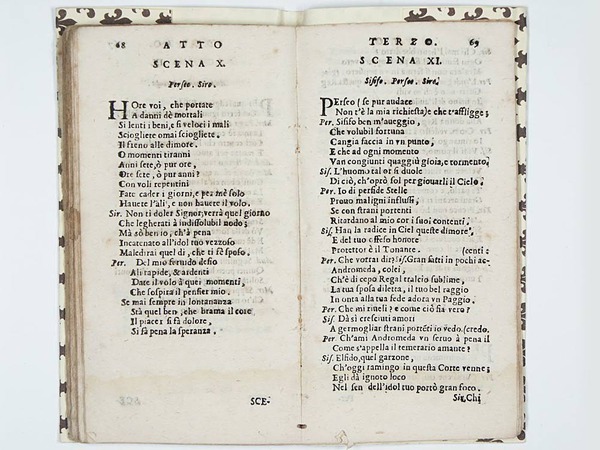 68 ATTO
SCENA X.
Perseo. Siro.
HOre voi, che portate
A danni dè mortali
Si lenti i beni, e si veloci i mali
Sciogliete omai sciogliete.
Il freno alle dimore.
O momenti tiranni
Anni sete, ò pur ore,
Ore sete, ò pur anni?
Con voli repentini
Fate cader i giorni, e per me solo
Hauete l'ali, e non hauete il volo.
Sir. Non ti doler Signor, verrà quel giorno
Che legherati à indissolubil nodo;
Mà sò benio, ch'à pena
Incatenato all'idol tuo vezzoso
Maledirai quel dì, che ti fè sposo.
Per. Del mio feruido desio
Ali rapide, & ardenti
Date il volo à quei momenti,
Che sospira il pensier mio.
Se mai sempre in lontananza
Stà quel ben, che brama il core
Il piacer si fà dolore,
Si fà pena la speranza.
SCE-
TERZO. 69
SCENA XI.
Sisife. Perseo. Siro.
PErseo (se pur audace
Non t'è la mia richiesta) e che t'affligge;
Per. Sisifo ben m'aueggio,
Che volubil fortuna
Cangia faccia in vn punto,
E che ad ogni momento
Van congiunti quaggiù gioia, e tormento,
Sis. L'huomo tal or si duole
Di ciò, ch'oprò sol per giouarli il Cielo.
Per. Io di perfide Stelle
Prouo maligni influssi,
Se con strani portenti
Ritardano al mio cor i suoi contenti.
Sis. Han la radice in Ciel queste dimore,
E del tuo offeso honore
Protettor è il Tonante. (centi:
Per. Che vottai dir? Sis. Gran fatti in pochi ac-
Andromeda, colei,
Ch'è di cepo Regal tralcio sublime,
La tua sposa diletta, il tuo bel raggio
In onta alla tua fede adora vn Paggio.
Per. Che mi riueli? e come ciò fia vero?
Sis. Dà sì cresciuti amori
A germogliar strani portēti io vedo. (credo.
Per. Ch'ami Andromeda vn seruo à pena il
Come s'appella il temerario amante?
Sis. Elsido, quel garzone,
Ch'oggi ramingo in questa Corte venne;
Egli dà ignoto loco
Nel sen dell'idol tuo portò gran foco.
Sir. Chi